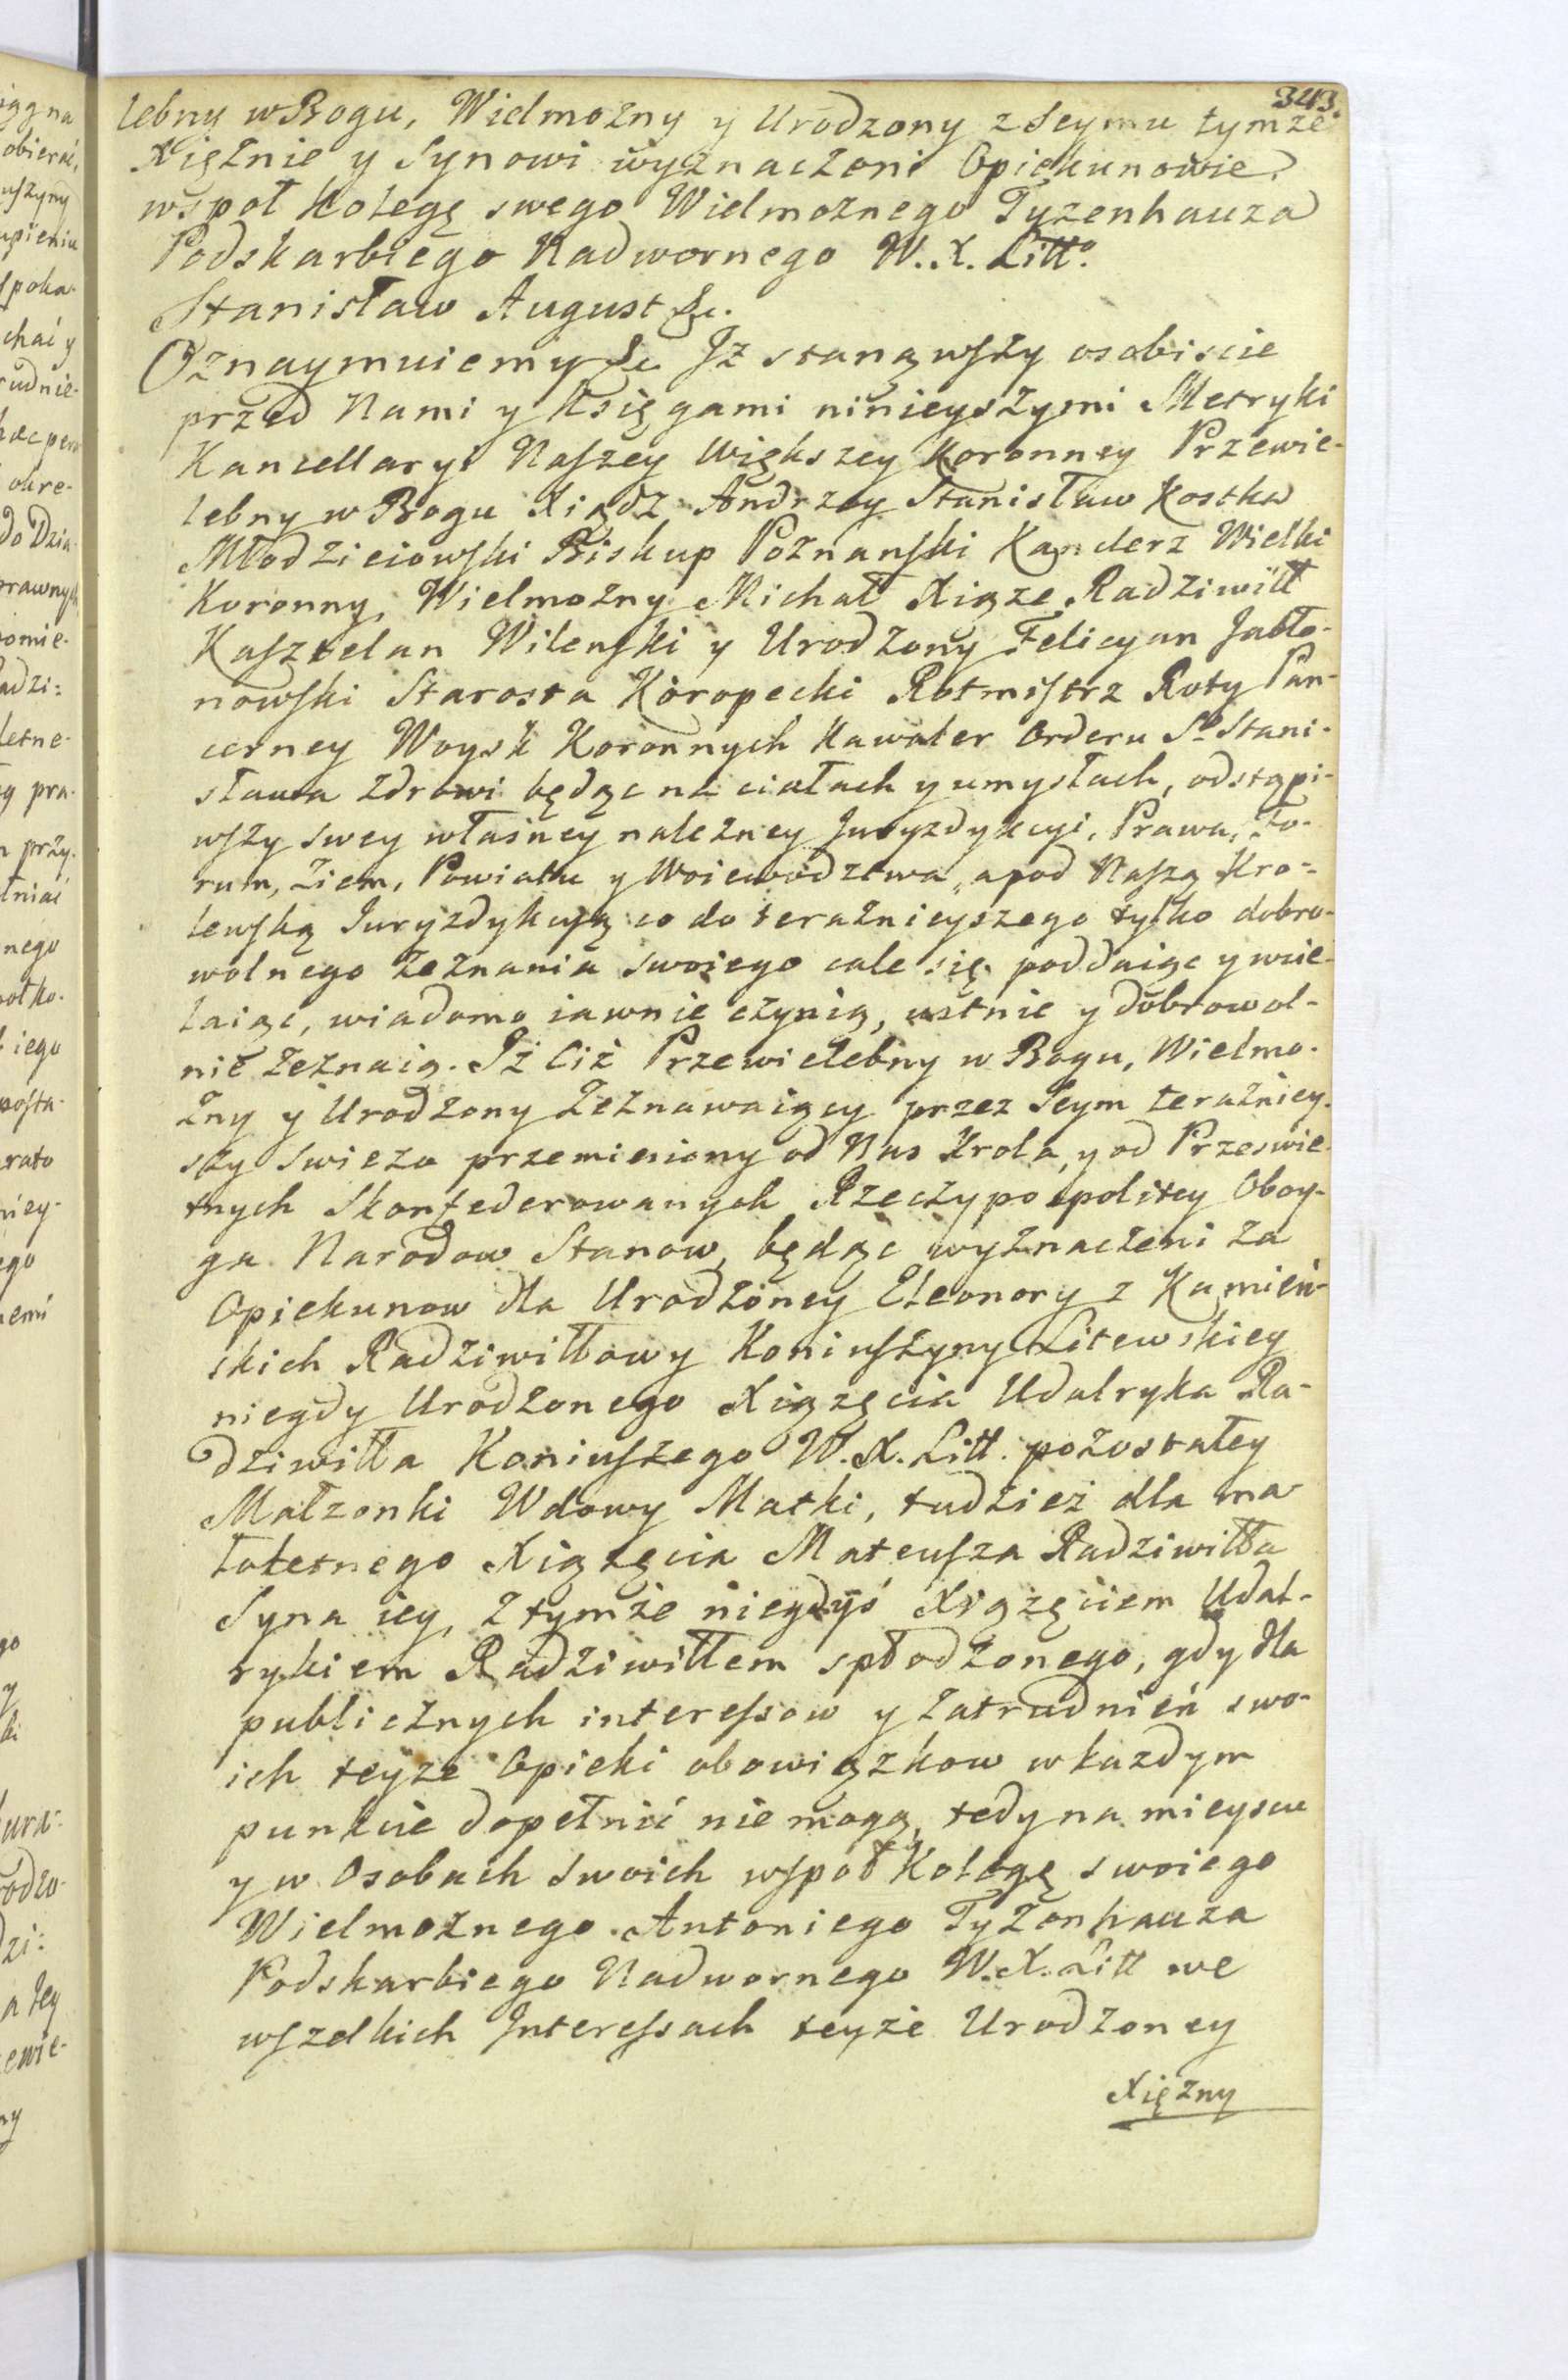 343.
lebny w Bogu, Wielmożny y Urodzony z Seymu tymże
Xiężnie y Synowi wyznaczoni Opiekunowie
wspoł Kolegę swego Wielmożnego Tyzenhauza
Podskarbiego Nadwornego W. X. Litt⁰.
Stanisław August &c.
Oznaymuiemy &c Jż stanąwszy osobiscie
przed Nami y Księgami ninieyszymi Metryki
Kancellaryi Naszey Większey Koronney Przewie-
lebny w Bogu Xiądz Andrzey Stanisław Kostka
Młodzieiowski Biskup Poznanski Kanclerz Wielki
Koronny, Wielmożny Michał Xiąze Radziwiłł
Kasztelan Wilenski y Urodzony Felicyan Jabło-
nowski Starosta Koropecki Rotmistrz Roty Pan-
cerney Woysk Koronnych Kawaler Orderu S⁰ Stani-
sława zdrowi będąc na ciałach y umysłach, odstąpi-
wszy swey własney należney Juryzdykcyi, Prawa, Fo-
rum, Ziem, Powiatu y Woiewodztwa, a pod Naszą Kro-
lewską Juryzdykcyą co do teraznieyszego tylko dobro-
wolnego zeznania swoiego cale się poddaiąc y wcie-
laiąc, wiadomo iawnie czynią, ustnie y dobrowol-
nie zeznaią. Iż Ciż Przewielebny w Bogu, Wielmo-
żny y Urodzony Zeznawaiący przez Seym teraźniey-
szy swiezo przemieniony od Nas Krola, y od Przeswie-
tnych Skonfederowanych Rzeczypospolitey Oboy-
ga Narodow Stanow, będąc wyznaczeni za
Opiekunow dla Urodzoney Eleonory z Kamień-
skich Radziwiłłowy Koniuszyny Litewskiey
niegdy Urodzonego Xiążęcia Udalryka Ra-
dziwiłła Koniuszego W. X. Litt. pozostałey
Małżonki Wdowy Matki, tudzież dla ma-
łoletnego Xiążęcia Mateusza Radziwiłła
Syna iey, z tymże niegdyś Xiążęciem Udal-
rykiem Radziwiłłem spłodzonego, gdy dla
publicznych interessow y zatrudnień swo-
ich teyże Opieki obowiązkow w każdym
punkcie dopełnić nie mogą, tedy na mieyscu
y w Osobach swoich wspoł Kolegę swoiego
Wielmożnego Antoniego Tyzenhauza
Podskarbiego Nadwornego W. X. Litt we
wszelkich Interessach teyże Urodzoney
Xiężny